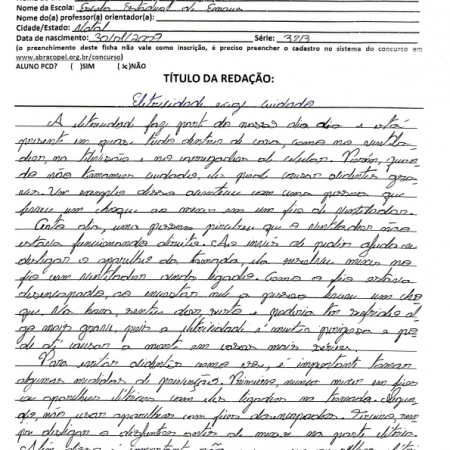 Nome da Escola: Escola Estadual de
Nome do(a) professor(a) orientador(a):
Cidade/Estado: Natal
Data de nascimento: Série:
(o preenchimento deste ficha não vale como inscrição, é preciso preencher o cadastro no sistema do concurso em
www.abracopel.org.br/concurso)
ALUNO PCD? ( )SIM (x)NÃO
TÍTULO DA REDAÇÃO:
Eletricidade cuidado
A eletricidade faz parte do nosso dia a dia e está
presente em quase tudo dentro de casa, como no ventila-
dor, na televisão e no carregador de celular. Porém, quan-
do não tomamos cuidado, ela pode causar acidentes gra-
ves. Um exemplo disso aconteceu com uma pessoa que
levou um choque ao mexer em um fio de ventilador.
Certo dia, uma pessoa percebeu que o ventilador não
estava funcionando direito. Ao invés de pedir ajuda ou
desligar o aparelho da tomada, ela resolveu mexer no
fio com o ventilador ainda ligado. Como o fio estava
desencapado, ao encostar nele a pessoa levou um cho-
que. Na hora, sentiu dor, susto e poderia ter sofrido al-
go mais grave, pois a eletricidade é muito perigosa e po-
de até causar a morte em casos mais sérios.
Para evitar acidentes como esse, é importante tomar
algumas medidas de prevenção. Primeiro, nunca mexer em fios
ou aparelhos elétricos com eles ligados na tomada. Segun-
do, não usar aparelhos com fios desencapados. Terceiro, sem-
pre desligar o disjuntor antes de mexer na parte elétrica.
Além disso, é importante não